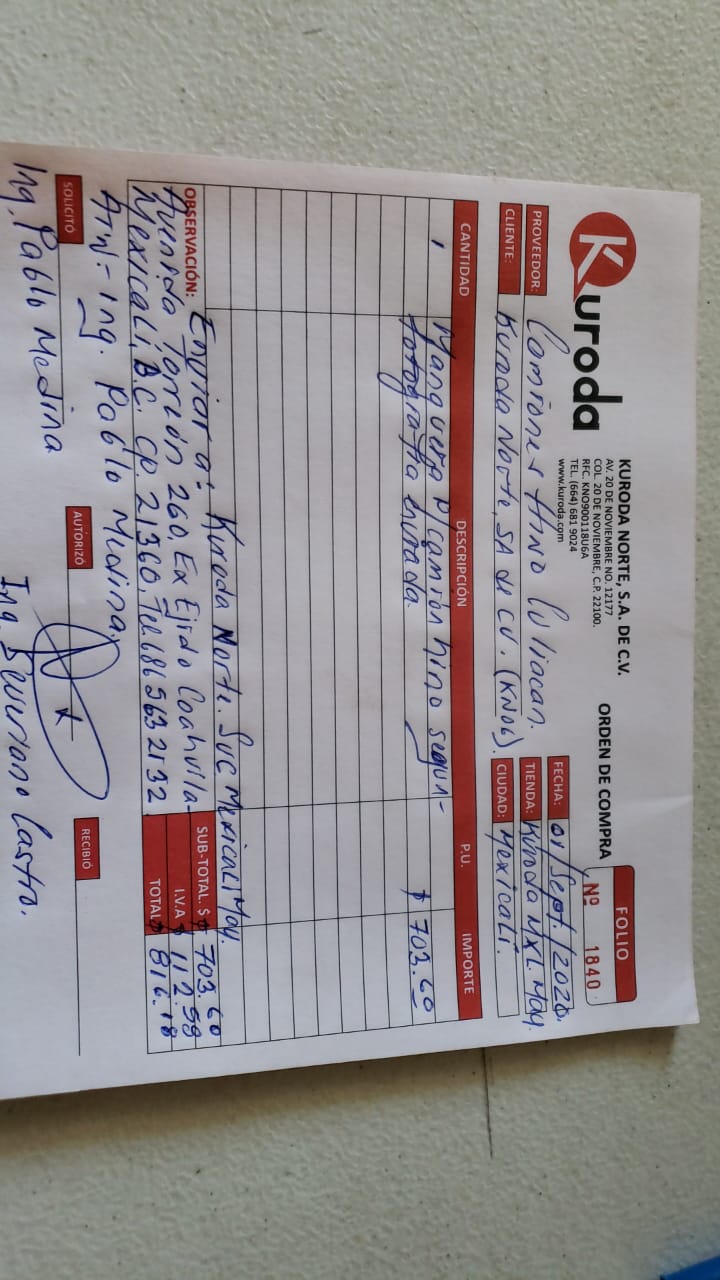 Kuroda
KURODA NORTE, S.A. DE C.V.
AV. 20 DE NOVIEMBRE NO. 12177
COL. 20 DE NOVIEMBRE, C.P. 22100.
RFC. KNO900118U6A
TEL. (664) 681 9024
www.kuroda.com
ORDEN DE COMPRA
FOLIO
Nº 1840
PROVEEDOR: Camiones Hino Culiacan.
FECHA: 01/Sept./2020.
CLIENTE: Kuroda Norte, SA de CV. (KN06).
TIENDA: Kuroda MXL May.
CIUDAD: Mexicali.
CANTIDAD DESCRIPCIÓN P.U. IMPORTE
1 Manguera p/camión hino según-
fotografía enviada. $ 703.60
Enviar a: Kuroda Norte. Suc Mexicali May.
OBSERVACIÓN: Avenida Torreón 260, Ex Ejido Coahuila-
Mexicali, B.C. CP. 21360. Tel. 686 563 2132
Atn.- Ing. Pablo Medina.
SUB-TOTAL. $ 703.60
I.V.A $ 112.58
TOTAL $ 816.18
SOLICITÓ
Ing. Pablo Medina
AUTORIZÓ
Ing. Severiano Castro.
RECIBIÓ